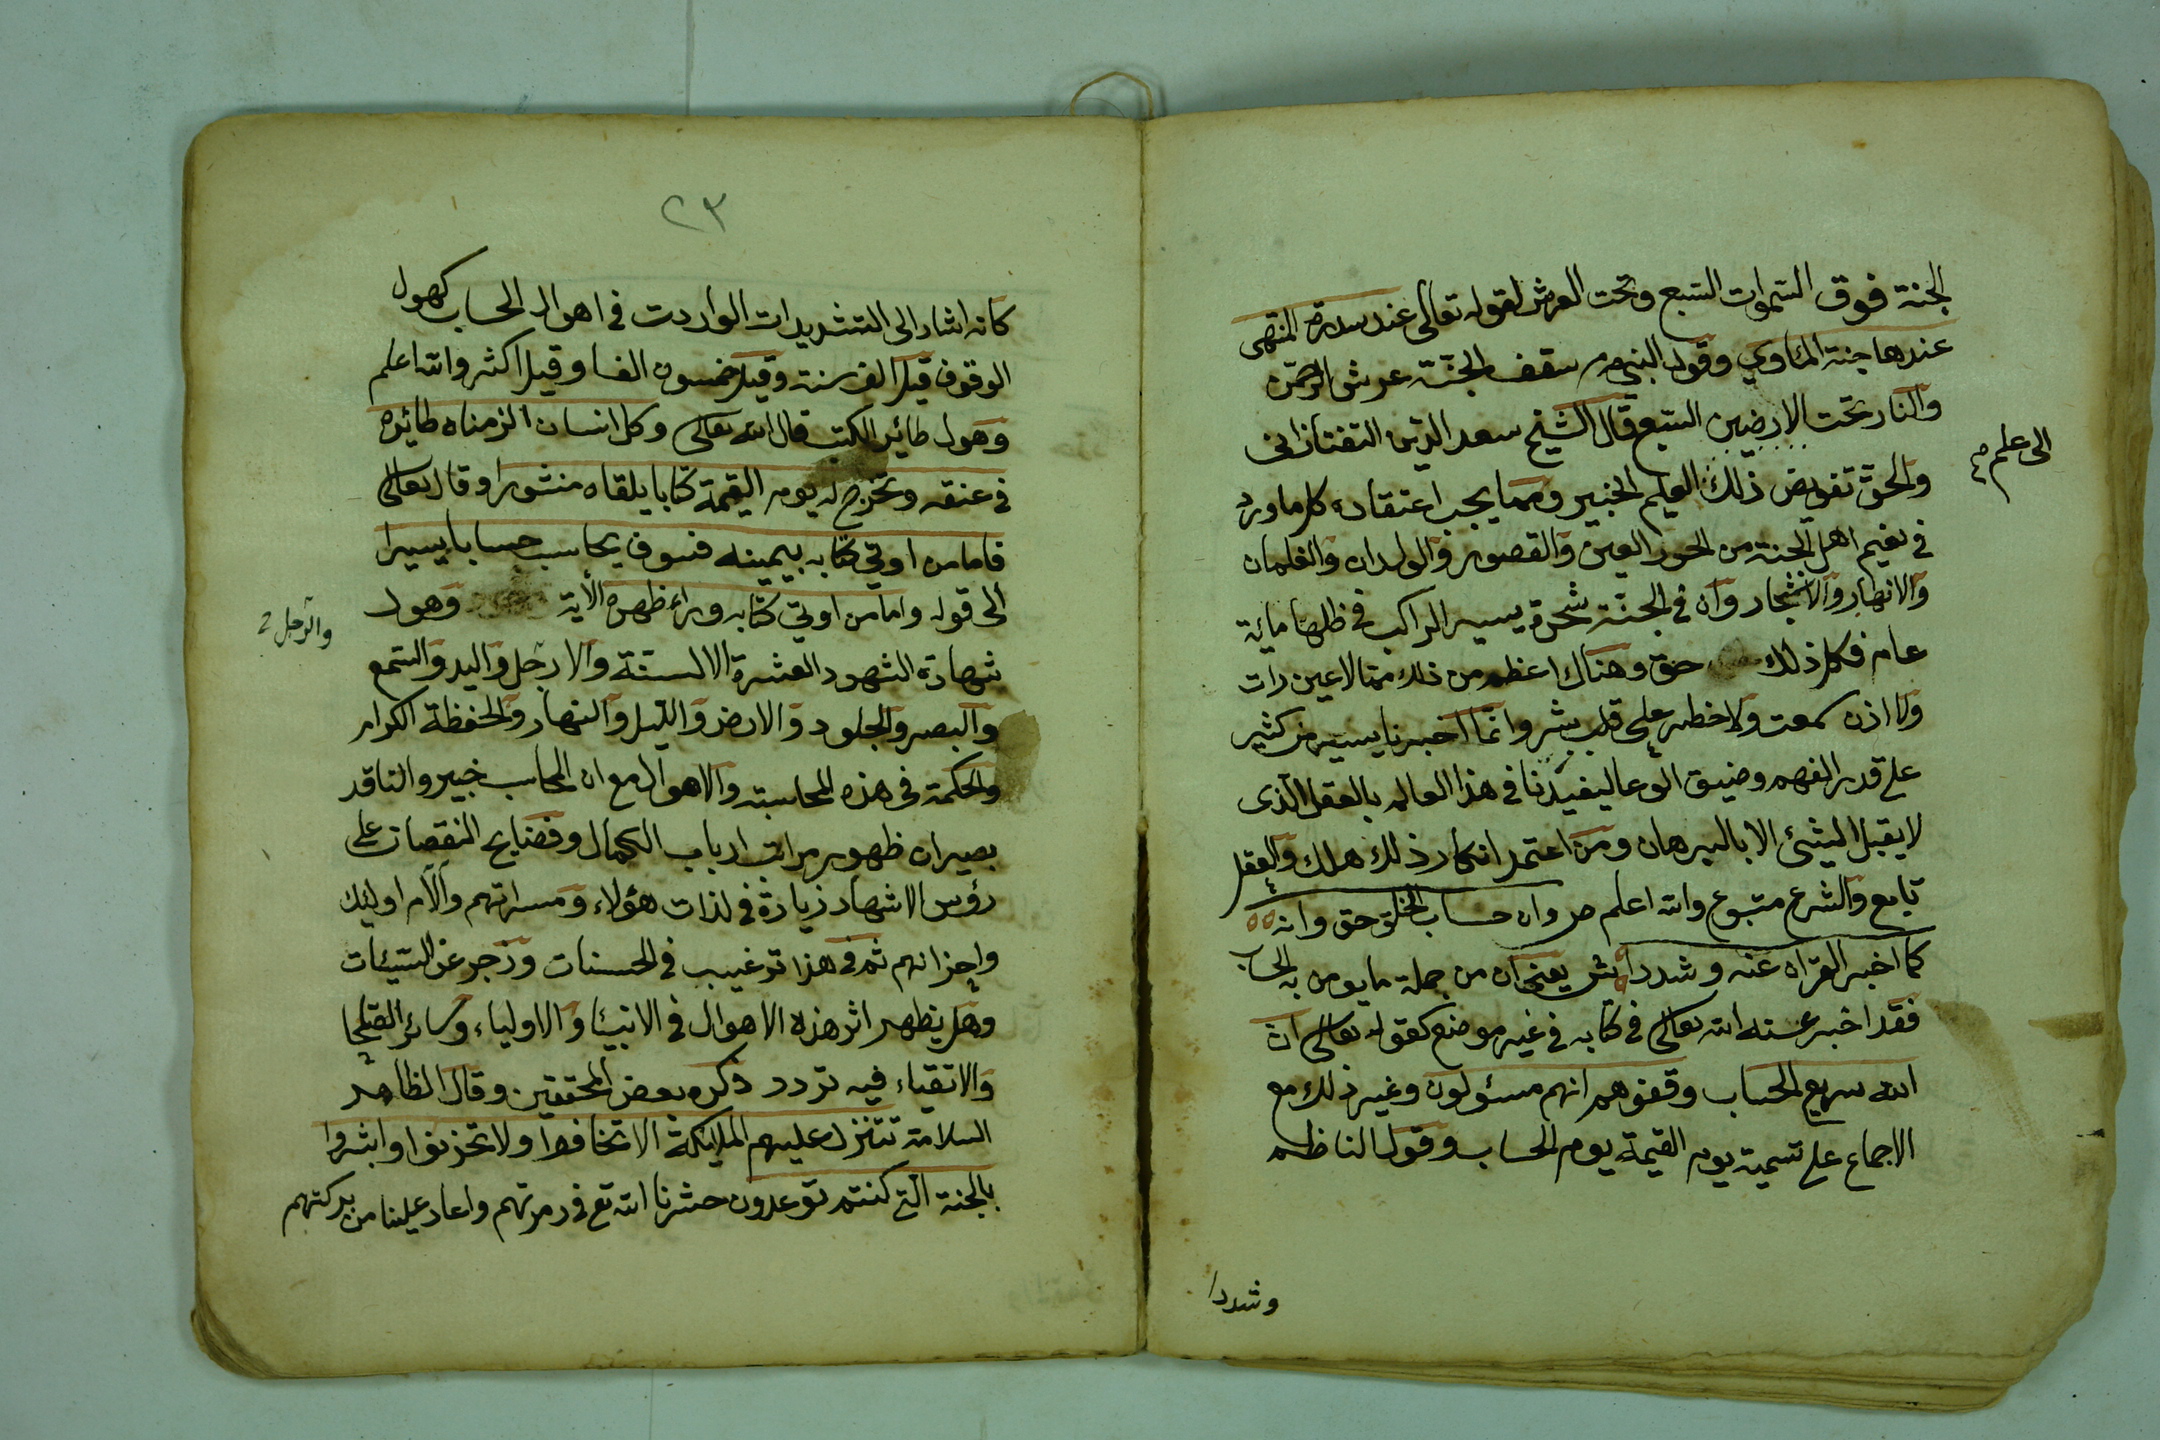 الجنة فوق السموات السبع وتحت العرش لقوله تعالى عند سدرة المنتهى
عندها جنة المأوي وقول النبي صم سقف الجنة عرش الرحمن
والنار تحت الارضين السبع قال الشيخ سعد الدين التفتازاني
والحق تفويض ذلك العليم الخبير ومما يجب اعتقاده كل ما ورد
الى علم صح
في نعيم اهل الجنة من الحور العين والقصور والولدان والغلمان
والانهار والاشجار وان في الجنة شجرة يسير الراكب في ظلها مائة
عام فكل ذلك حق وهناك اعظم من ذلك مما لا عين رات
ولا اذن سمعت ولا خطر على قلب بشر وانما اخبرنا بيسير من كثير
على قدر الفهم وضيق الوعا ليفيدنا في هذا العالم بالعقل الذى
لا يقبل الشئ الا بالبرهان ومن اعتمد انكار ذلك هلك والعقل
تابع والشرع متبوع والله اعلم ص وان حساب الخلق حق وانه
كما اخبر القران عنه وشددا ش يعني ان من جملة ما يومن به الحساب
فقد اخبر عنه الله تعالى في كتابه في غير موضع كقوله تعالى ان
الله سريع الحساب وقفوهم انهم مسئولون وغير ذلك مع
الاجماع على تسمية يوم القيمة يوم الحساب وقول الناظم
وشددا
٢٣
كانه اشار الى التشديدات الواردت في اهوال الحساب كهول
الوقوف قيل الف سنة وقيل خمسون الفا وقيل اكثر والله اعلم
وهول طائير الكتب قال الله تعالى وكل انسان الزمناه طائيره
في عنقه ونخرج له يوم القيمة كتابا يلقاه منشورا وقال تعالى
فاما من اوتي كتابه بيمينه فسوف يحاسب حسابا يسيرا
الى قوله واما من اوتي كتابه وراء ظهره الأية وهول
شهادة الشهود العشرة الالسنة والارجل واليد والسمع
والرجل
والبصر والجلود والارض والليل والنهار والحفظة الكرام
والحكمة في هذه المحاسبته والاهوال مع ان المحاسب خبير والناقد
بصير ان ظهور مراتب ارباب الكمال وفضايح النقصان على
رؤس الاشهاد زيادة في لذات هؤلاء ومسراتهم وآلام اولئك
واحزانهم ثم في هذا ترغيب في الحسنات وزجر عن السيئات
وهل يظهر اثر هذه الاهوال في الانبيا والاولياء وسائر الصلحا
والاتقياء فيه تردد ذكره بعض المحققين وقال الظاهر
السلامة تتنزل عليهم الملايكة الا تخافوا ولا تحزنوا وابشروا
بالجنة التي كنتم توعدون حشرنا الله تع في زمرتهم واعاد علينا من بركتهم